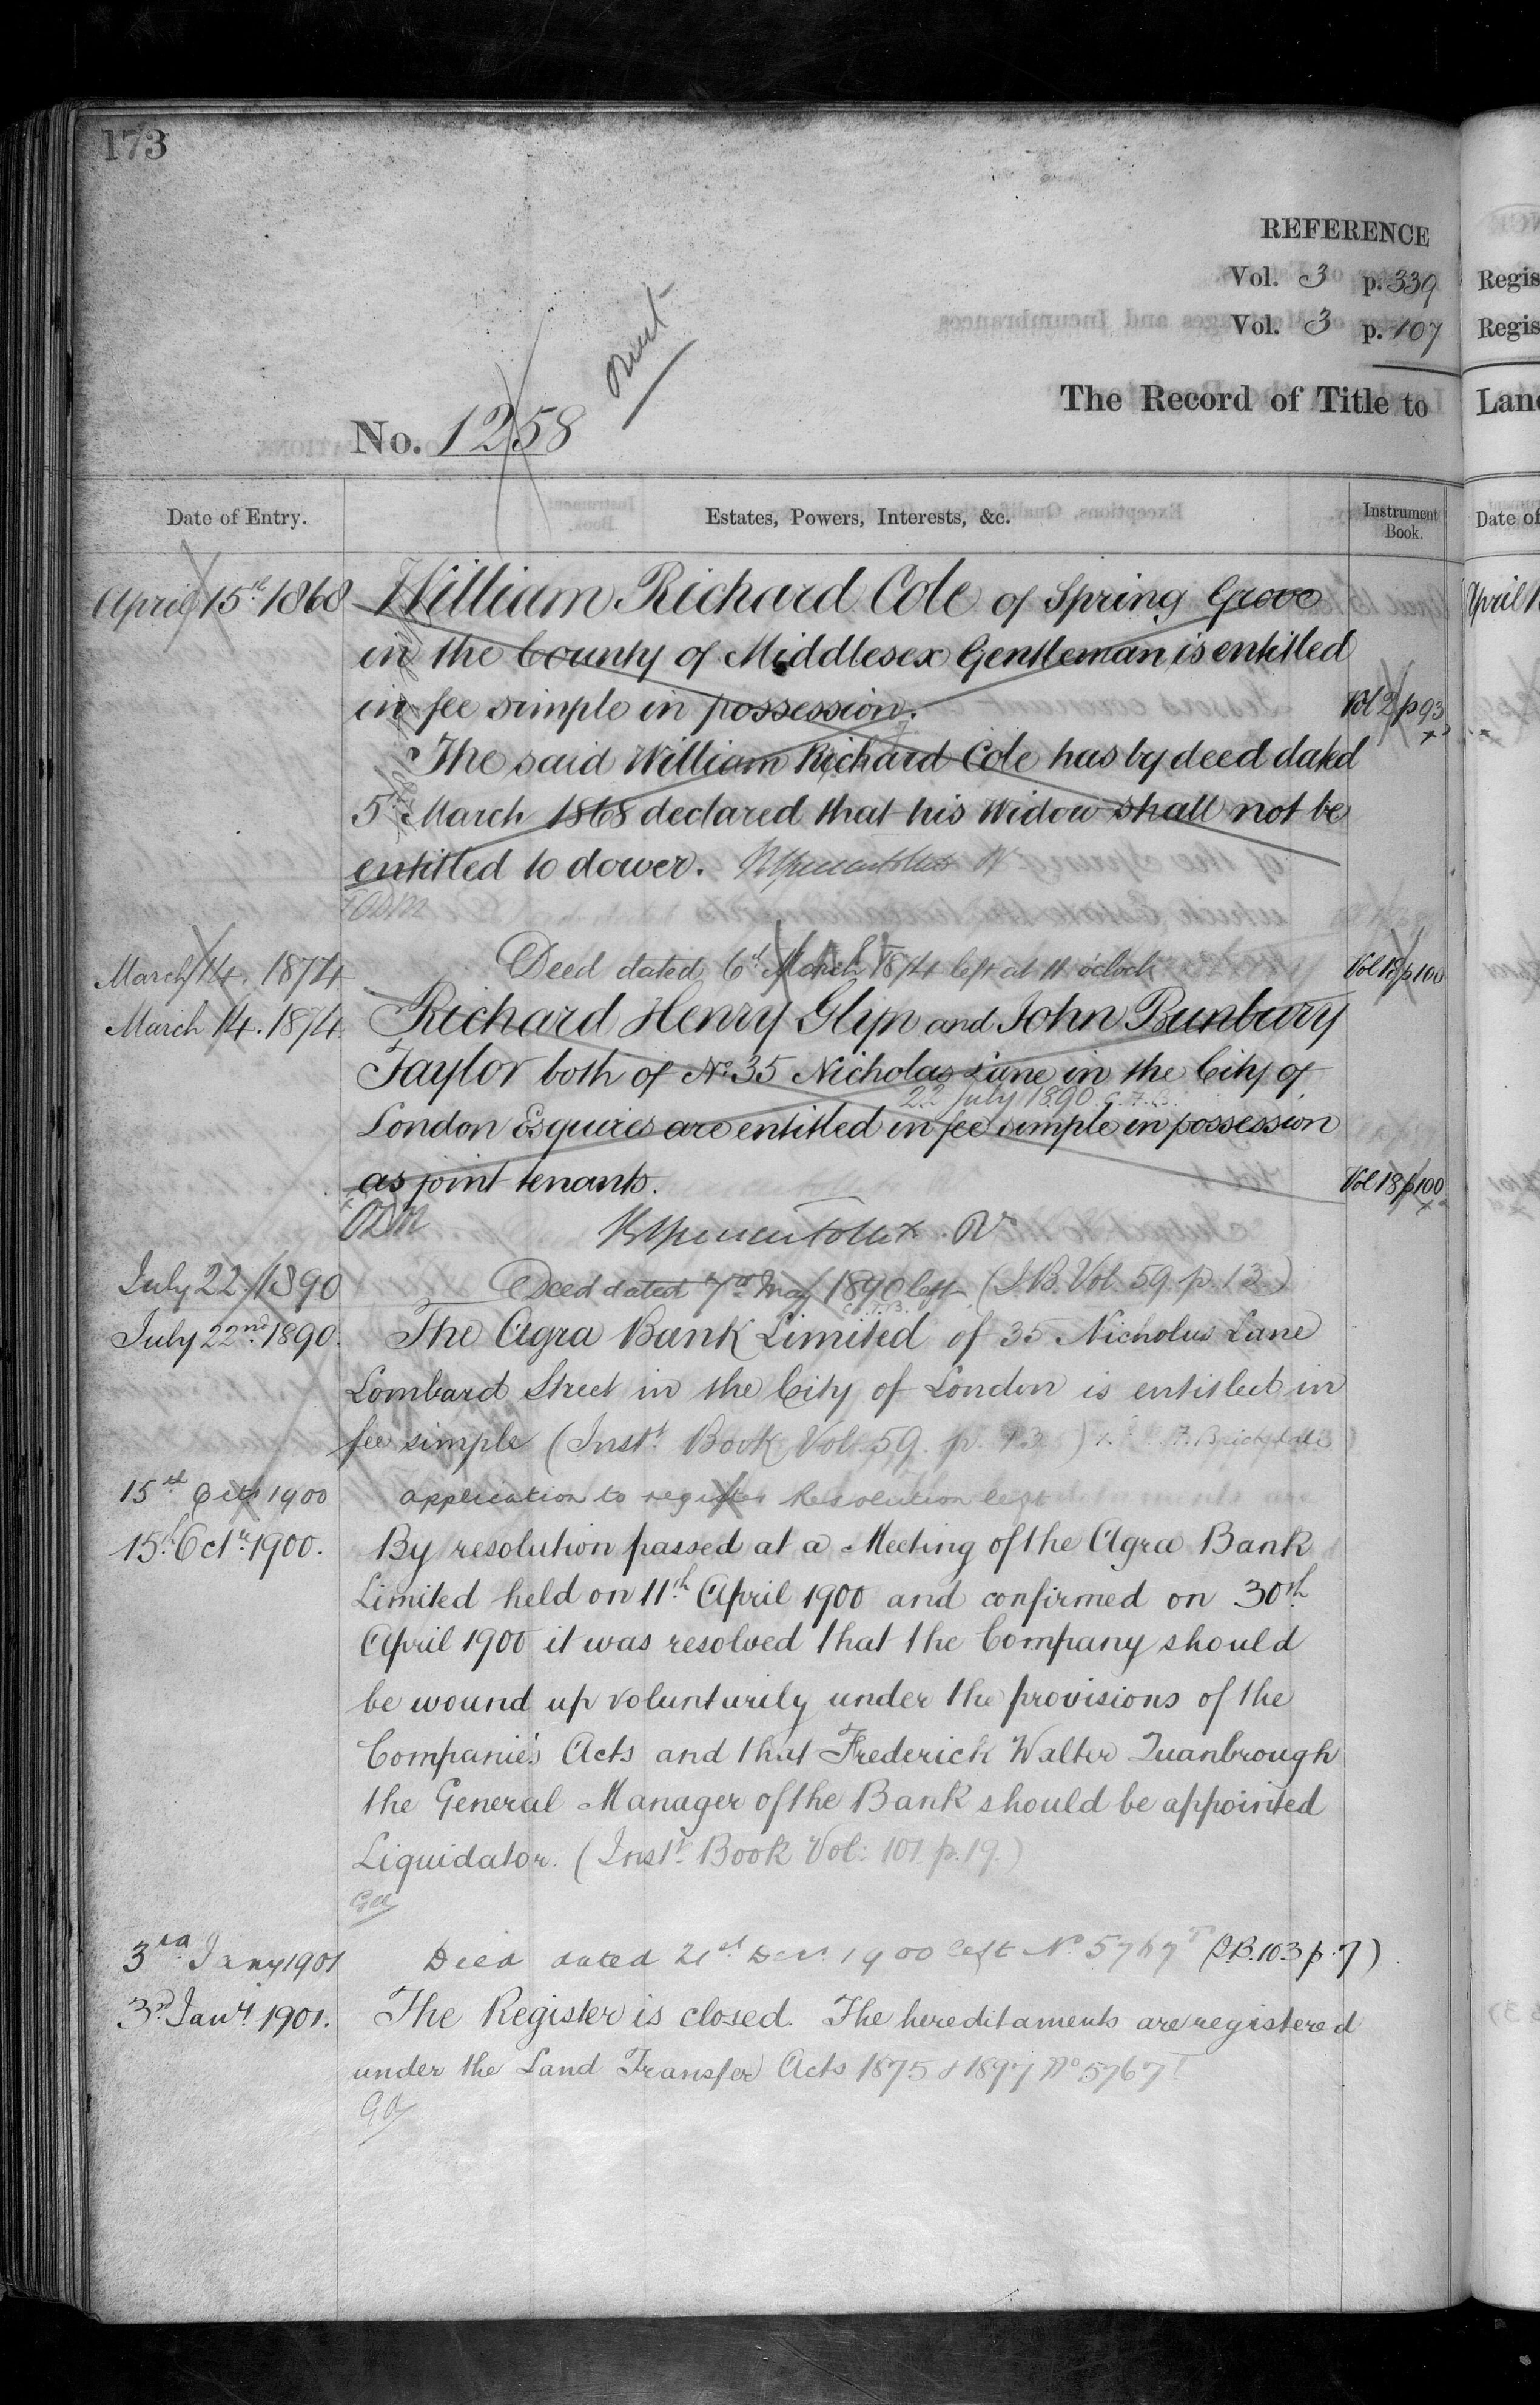 173
REFERENCE
Vol. 3 p. 339
Vol. 3 p. 107
The Record of Title to
No. 1258
Date of Entry.
Estates, Powers, Interests, &c.
Instrument Book.
April 15th 1868 William Richard Cole of Spring Grove
in the County of Middlesex Gentleman is entitled
in fee simple in possession. Vol 2 p 93
The said William Richard Cole has by deed dated
5th March 1868 declared that his Widow shall not be
entitled to dower.
March 14. 1874 Deed dated 6th March 1874 left at 11 o'clock Vol 18 p 100
March 14. 1874. Richard Henry Glyn and John Bunbury
Taylor both of No. 35 Nicholas Lane in the City of
22 July 1890 C.F.B.
London Esquires are entitled in fee simple in possession
as joint tenants. Vol 18 p 100
July 22. 1890 Deed dated 7th May 1890 left (I.B. Vol. 59. p. 13)
July 22nd 1890. The Agra Bank Limited of 35 Nicholas Lane
Lombard Street in the City of London is entitled in
fee simple (Instt. Book Vol. 59. p. 13)
15th Octr 1900 application to register Resolution left
15th Octr. 1900. By resolution passed at a Meeting of the Agra Bank
Limited held on 11th April 1900 and confirmed on 30th
April 1900 it was resolved that the Company should
be wound up volunturily under the provisions of the
Companie's Acts and that Frederick Walter Quanbrough
the General Manager of the Bank should be appointed
Liquidator. (Instt. Book Vol: 101. p. 19.)
3rd Jany 1901 Deed dated 21st Decr 1900 left No. 5767T (I.B. 103 p. 7)
3rd Jany. 1901. The Register is closed. The hereditaments are registered
under the Land Transfer Acts 1875 & 1897 No 5767T
Regis
Regis
Land
Date of
April 1